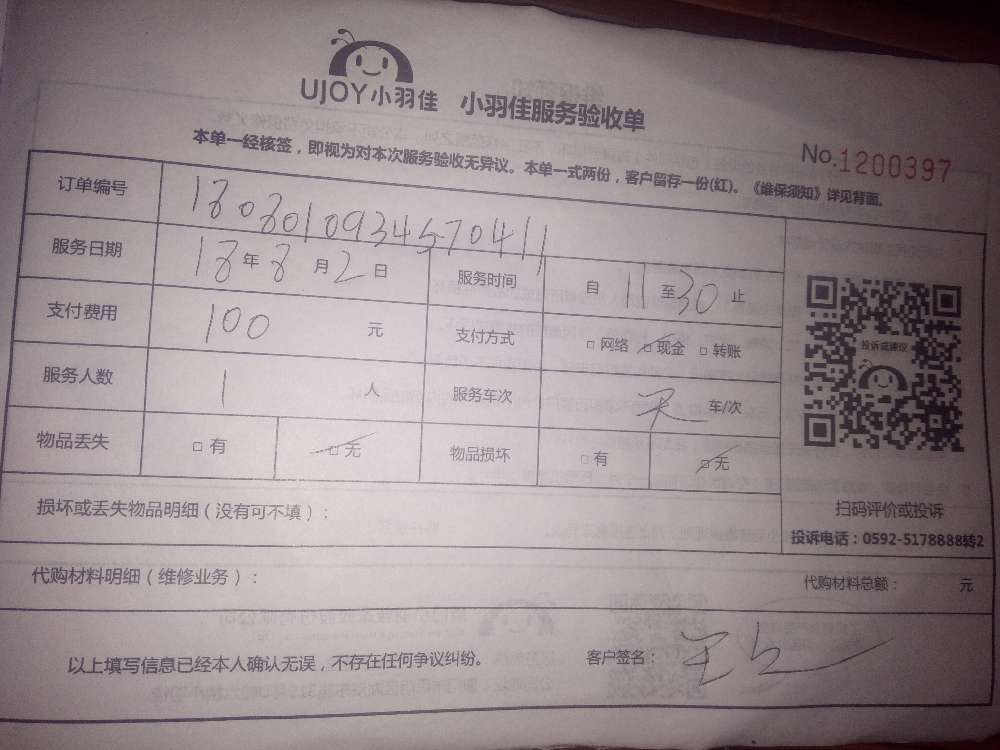 UJOY小羽佳 小羽佳服务验收单
No.1200397
本单一经核签，即视为对本次服务验收无异议。本单一式两份，客户留存一份(红)。《维保须知》详见背面。
订单编号 1808010934570411
服务日期 18年8月2日 服务时间 自 11 至 30 止
支付费用 100 元 支付方式 □网络 □现金 □转账
服务人数 1 人 服务车次 车/次
物品丢失 □有 □无 物品损坏 □有 □无
投诉或建议
扫码评价或投诉
投诉电话：0592-5178888转2
损坏或丢失物品明细（没有可不填）：
代购材料明细（维修业务）： 代购材料总额： 元
以上填写信息已经本人确认无误，不存在任何争议纠纷。 客户签名：